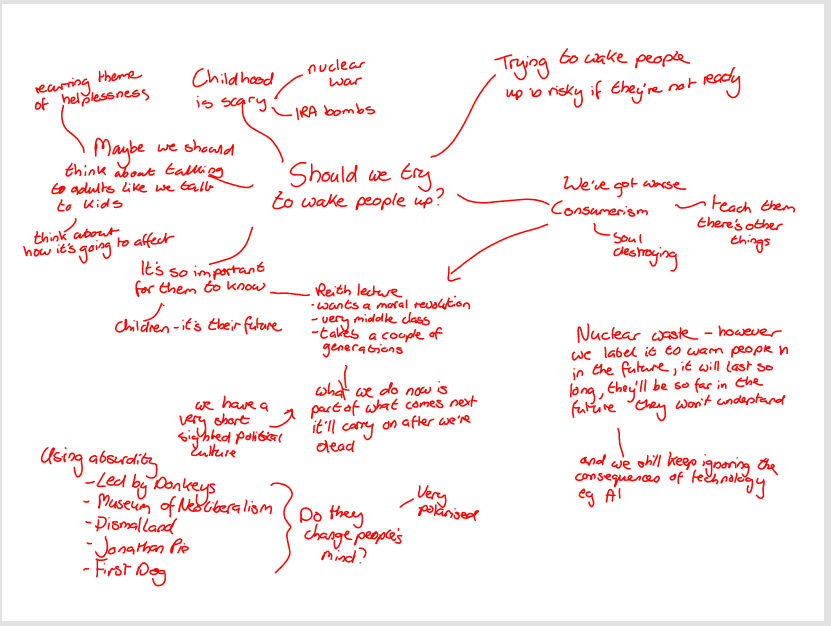 recurring theme
of helplessness
Childhood
is scary
nuclear
war
IRA bombs
Trying to wake people
up is risky if they're not ready
Maybe we should
think about talking
to adults like we talk
to kids
think about
how it's going to affect
Should we try
to wake people up?
We've got worse
Consumerism
teach them
there's other
things
Soul
destroying
It's so important
for them to know
children - it's their future
Reith lecture
- wants a moral revolution
- very middle class
- takes a couple of
generations
what we do now is
part of what comes next
it'll carry on after we're
dead
we have a
very short
sighted political
culture
Nuclear waste - however
we label it to warn people n
in the future, it will last so
long, they'll be so far in the
future they won't understand
and we still keep ignoring the
consequences of technology
eg AI
Using absurdity
- Led by Donkeys
- Museum of Neoliberalism
- Dismaland
- Jonathan Pie
- First Dog
Do they
change people's
mind?
Very
polarised